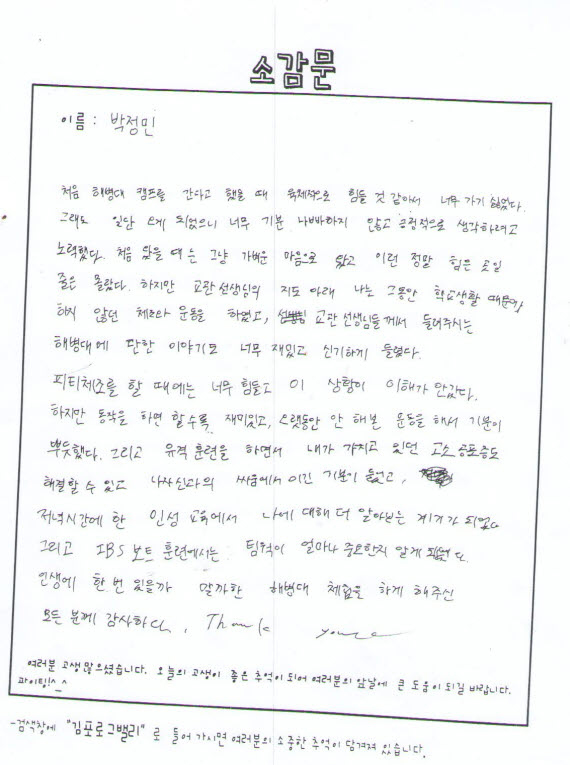 소감문
이름 : 박정민
처음 해병대 캠프를 간다고 했을 때 육체적으로 힘들 것 같아서 너무 가기 싫었다.
그래도 일단 오게 되었으니 너무 기분 나빠하지 않고 긍정적으로 생각하려고
노력했다. 처음 왔을 때는 그냥 가벼운 마음으로 왔고 이런 정말 힘든 곳일
줄은 몰랐다. 하지만 교관선생님의 지도 아래 나는 그동안 학교생활 때문에
하지 않던 체조와 운동을 하였고, 교관선생님들께서 들려주시는
해병대에 관한 이야기도 너무 재밌고 신기하게 들렸다.
피티체조를 할 때에는 너무 힘들고 이 상황이 이해가 안갔다.
하지만 동작을 하면 할수록 재미있고, 오랫동안 안 해본 운동을 해서 기분이
뿌듯했다. 그리고 유격 훈련을 하면서 내가 가지고 있던 고소공포증도
해결할 수 있고 나자신과의 싸움에서 이긴 기분이 들었고,
저녁시간에 한 인성 교육에서 나에 대해 더 알아보는 계기가 되었다
그리고 IBS 보트 훈련에서는 팀워크 얼마나 중요한지 알게 되었다.
인생에 한 번 있을까 말까한 해병대 체험을 하게 해주신
모든 분께 감사하다. Thank
여러분 고생 많으셨습니다. 오늘의 고생이 좋은 추억이 되어 여러분의 앞날에 큰 도움이 되길 바랍니다.
파이팅!^_^
-검색창에 "김포로그밸리" 로 들어 가시면 여러분의 소중한 추억이 담겨져 있습니다.